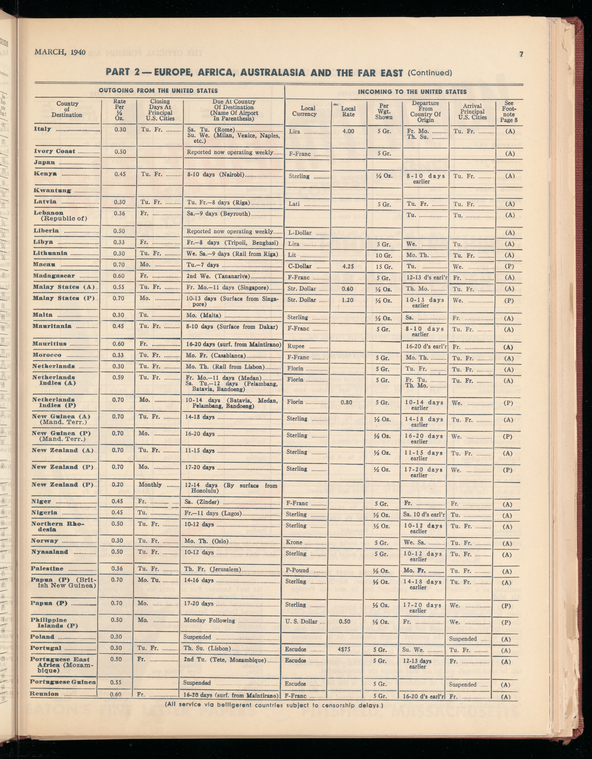 MARCH, 1940
7
PART 2—EUROPE, AFRICA, AUSTRALASIA AND THE FAR EAST (Continued)
OUTGOING FROM THE UNITED STATES INCOMING TO THE UNITED STATES
Country of Destination | Rate Per ½ Oz. | Closing Days At Principal U.S. Cities | Due At Country Of Destination (Name Of Airport In Parenthesis) | Local Currency | Local Rate | Per Wgt. Shown | Departure From Country Of Origin | Arrival Principal U.S. Cities | See Foot-note Page 8
Italy 0.30 Tu. Fr. Sa. Tu. (Rome) Lira 4.00 5 Gr. Fr. Mo. Tu. Fr. (A)
Su. We. (Milan, Venice, Naples, etc.) Th. Su.
Ivory Coast 0.50 Reported now operating weekly F-Franc 5 Gr. (A)
Japan
Kenya 0.45 Tu. Fr. 8-10 days (Nairobi) Sterling ½ Oz. 8-10 days earlier Tu. Fr. (A)
Kwantung
Latvia 0.30 Tu. Fr. Tu. Fr.—8 days (Riga) Lati 5 Gr. Tu. Fr. Tu. Fr. (A)
Lebanon (Republic of) 0.36 Fr. Sa.—9 days (Beyrouth) Tu. Tu. (A)
Liberia 0.50 Reported now operating weekly L-Dollar (A)
Libya 0.33 Fr. Fr.—8 days (Tripoli, Benghasi) Lira 5 Gr. We. Tu. (A)
Lithuania 0.30 Tu. Fr. We. Sa.—9 days (Rail from Riga) Lit 10 Gr. Mo. Th. Tu. Fr. (A)
Macau 0.70 Mo. Tu.—7 days C-Dollar 4.25 15 Gr. Tu. We. (P)
Madagascar 0.60 Fr. 2nd We. (Tananarive) F-Franc 5 Gr. 12-13 d's earl'r Fr. (A)
Malay States (A) 0.55 Tu. Fr. Fr. Mo.—11 days (Singapore) Str. Dollar 0.60 ½ Oz. Th. Mo. Tu. Fr. (A)
Malay States (P) 0.70 Mo. 10-13 days (Surface from Singapore) Str. Dollar 1.20 ½ Oz. 10-13 days earlier We. (P)
Malta 0.30 Tu. Mo. (Malta) Sterling ½ Oz. Sa. Fr. (A)
Mauritania 0.45 Tu. Fr. 8-10 days (Surface from Dakar) F-Franc 5 Gr. 8-10 days earlier Tu. Fr. (A)
Mauritius 0.60 Fr. 16-20 days (surf. from Maintirano) Rupee 16-20 d's earl'r Fr. (A)
Morocco 0.33 Tu. Fr. Mo. Fr. (Casablanca) F-Franc 5 Gr. Mo. Th. Tu. Fr. (A)
Netherlands 0.30 Tu. Fr. Mo. Th. (Rail from Lisbon) Florin 5 Gr. Tu. Fr. Tu. Fr. (A)
Netherlands Indies (A) 0.59 Tu. Fr. Fr. Mo.—11 days (Medan) Florin 5 Gr. Fr. Tu. Tu. Fr. (A)
Sa. Tu.—12 days (Pelambang, Batavia, Bandoeng) Th. Mo.
Netherlands Indies (P) 0.70 Mo. 10-14 days (Batavia, Medan, Pelambang, Bandoeng) Florin 0.80 5 Gr. 10-14 days earlier We. (P)
New Guinea (A) (Mand. Terr.) 0.70 Tu. Fr. 14-18 days Sterling ½ Oz. 14-18 days earlier Tu. Fr. (A)
New Guinea (P) (Mand. Terr.) 0.70 Mo. 16-20 days Sterling ½ Oz. 16-20 days earlier We. (P)
New Zealand (A) 0.70 Tu. Fr. 11-15 days Sterling ½ Oz. 11-15 days earlier Tu. Fr. (A)
New Zealand (P) 0.70 Mo. 17-20 days Sterling ½ Oz. 17-20 days earlier We. (P)
New Zealand (P) 0.20 Monthly 12-14 days (By surface from Honolulu)
Niger 0.45 Fr. Sa. (Zinder) F-Franc 5 Gr. Fr. Fr. (A)
Nigeria 0.45 Tu. Fr.—11 days (Lagos) Sterling ½ Oz. Sa. 10 d's earl'r Tu. (A)
Northern Rhodesia 0.50 Tu. Fr. 10-12 days Sterling ½ Oz. 10-12 days earlier Tu. Fr. (A)
Norway 0.30 Tu. Fr. Mo. Th. (Oslo) Krone 5 Gr. We. Sa. Tu. Fr. (A)
Nyasaland 0.50 Tu. Fr. 10-12 days Sterling 5 Gr. 10-12 days earlier Tu. Fr. (A)
Palestine 0.36 Tu. Fr. Th. Fr. (Jerusalem) P-Pound ½ Oz. Mo. Fr. Tu. Fr. (A)
Papua (P) (British New Guinea) 0.70 Mo. Tu. 14-16 days Sterling ½ Oz. 14-18 days earlier Tu. Fr. (A)
Papua (P) 0.70 Mo. 17-20 days Sterling ½ Oz. 17-20 days earlier We. (P)
Philippine Islands (P) 0.50 Mo. Monday Following U. S. Dollar 0.50 ½ Oz. Fr. We. (P)
Poland 0.30 Suspended Suspended (A)
Portugal 0.30 Tu. Fr. Th. Su. (Lisbon) Escudos 4$75 5 Gr. Su. We. Tu. Fr. (A)
Portuguese East Africa (Mozambique) 0.50 Fr. 2nd Tu. (Tete, Mozambique) Escudos 5 Gr. 12-13 days earlier Fr. (A)
Portuguese Guinea 0.55 Suspended Escudos 5 Gr. Suspended (A)
Reunion 0.60 Fr. 16-20 days (surf. from Maintirano) F-Franc 5 Gr. 16-20 d's earl'r Fr. (A)
(All service via belligerent countries subject to censorship delays.)